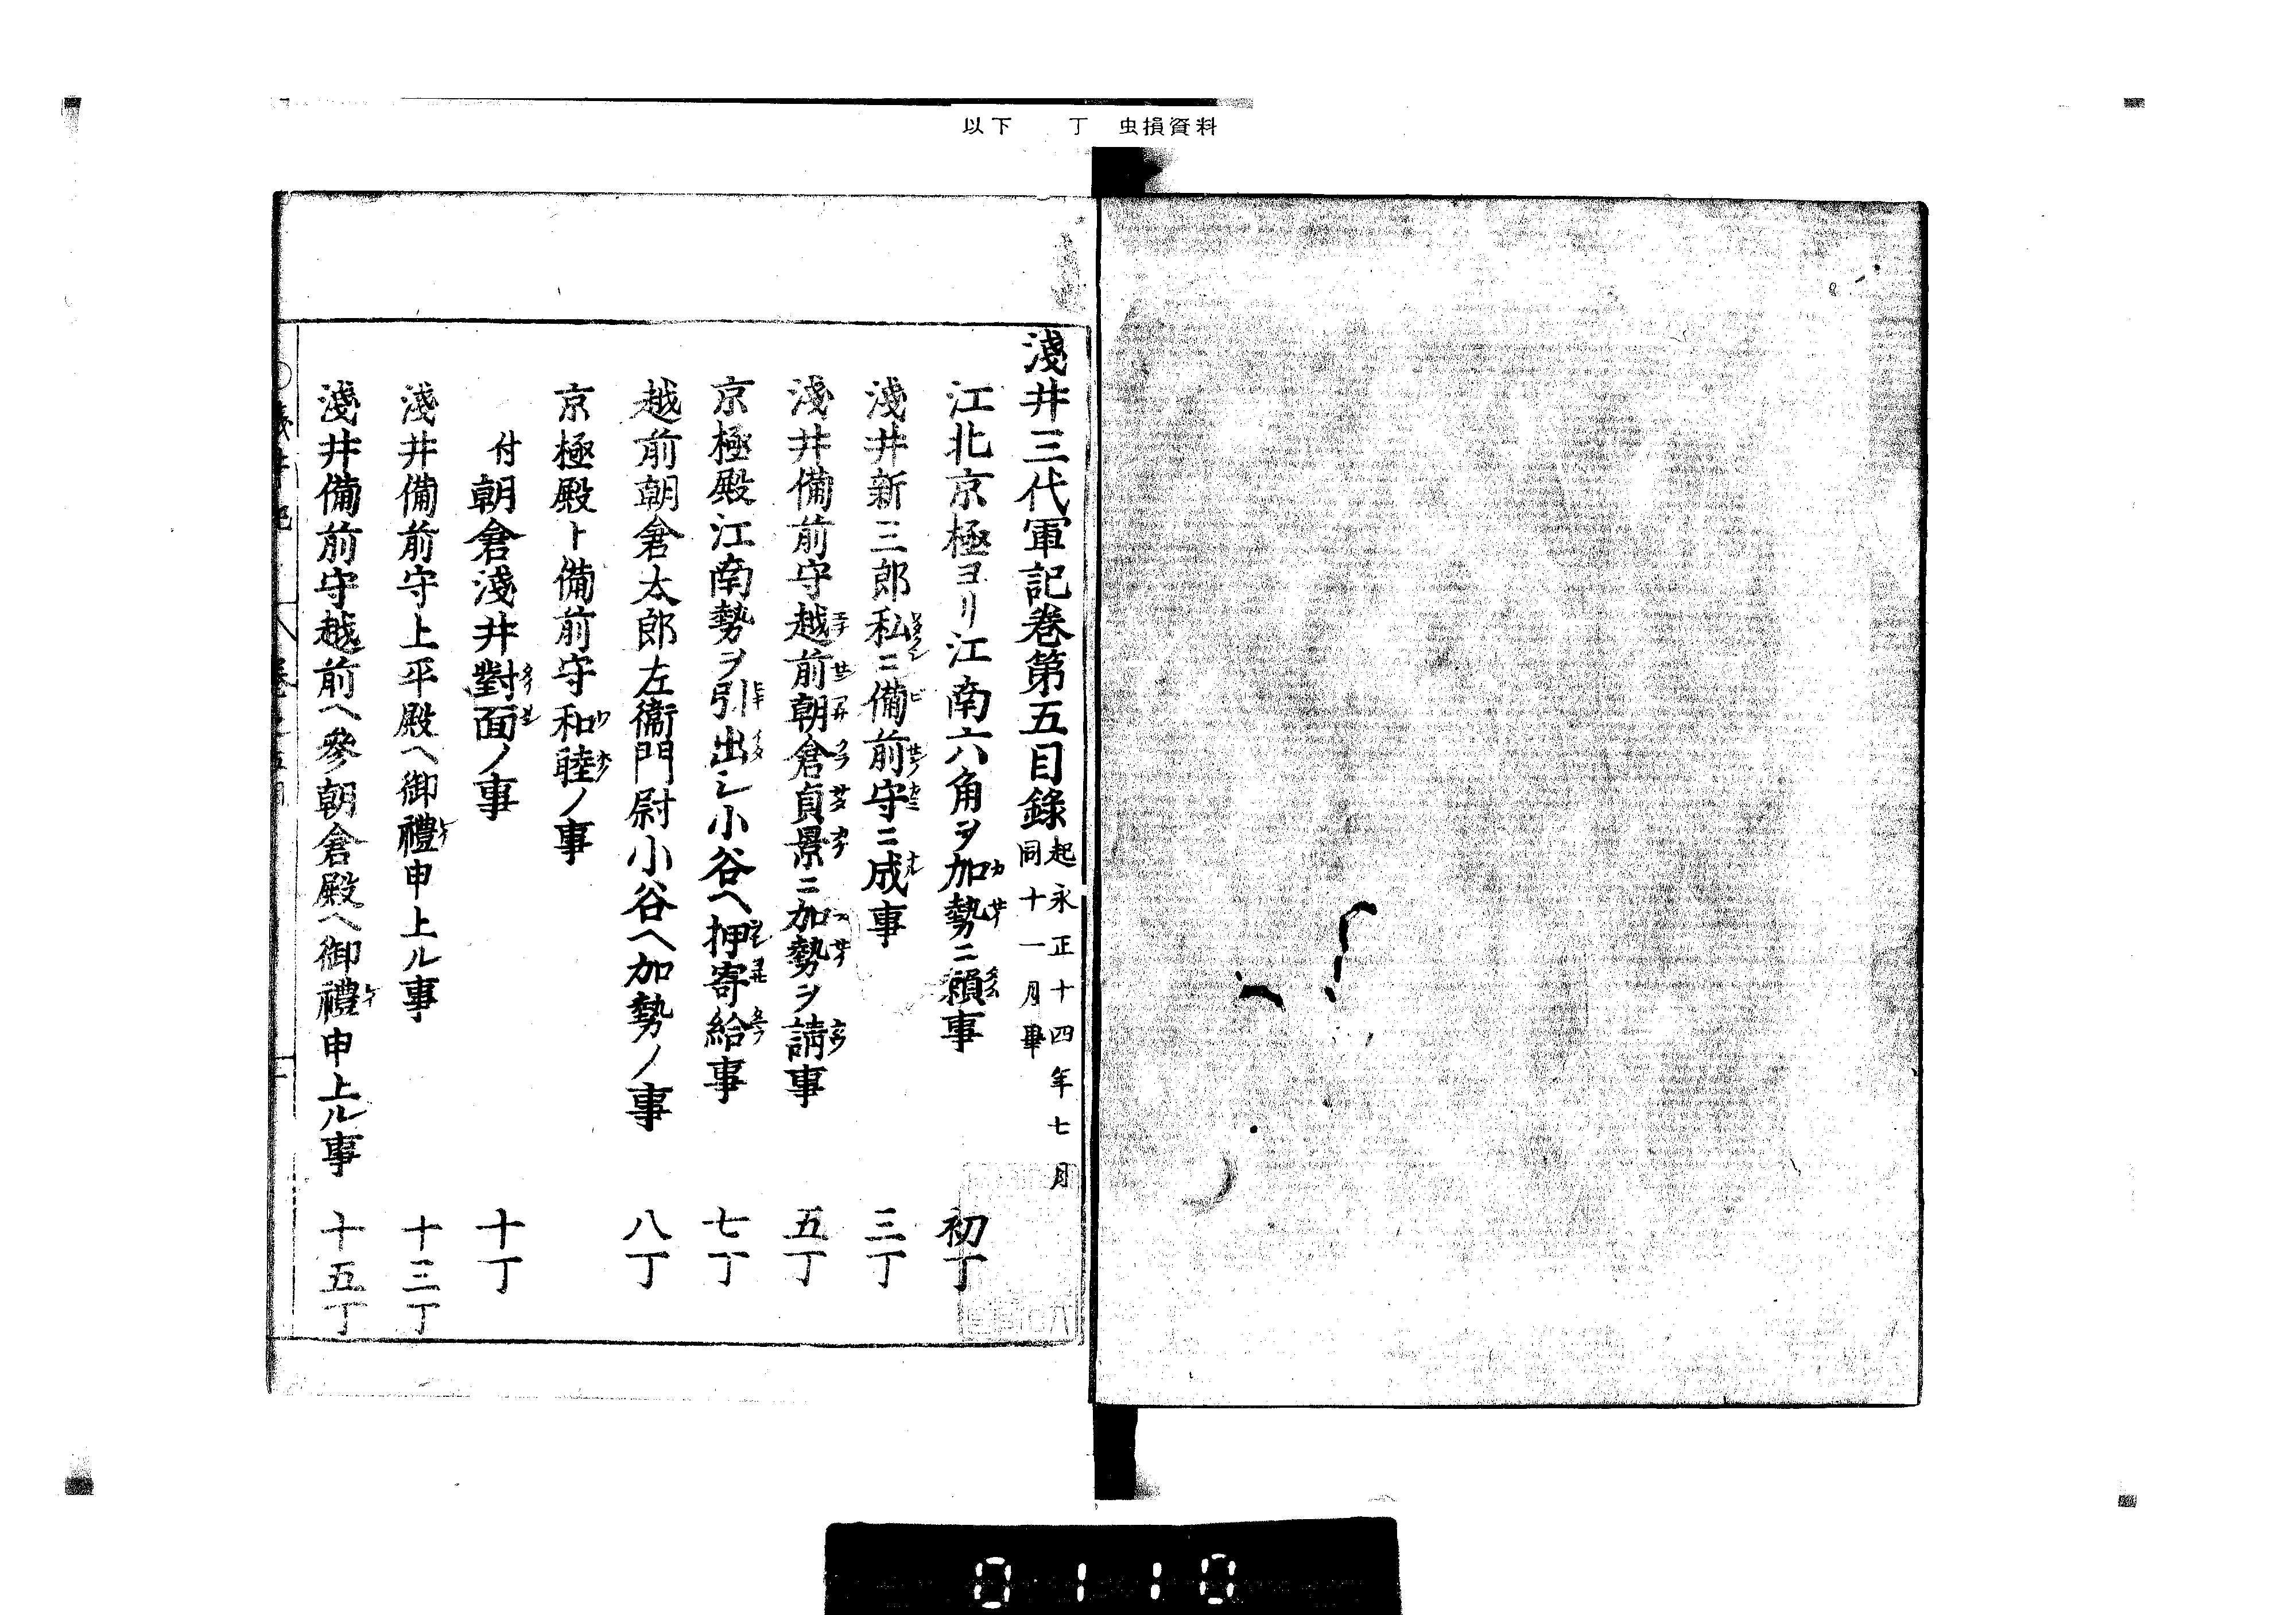 以下　丁　虫損資料
淺井三代軍記卷第五目錄
起永正十四年七月
同十一月畢
江北京極ヨリ江南六角ヲ加勢ニ頼事　初丁
淺井新三郎私ニ備前守ニ成事　三丁
淺井備前守越前朝倉貞景ニ加勢ヲ請事　五丁
京極殿江南勢ヲ引出シ小谷ヘ押寄給事　七丁
越前朝倉太郎左衞門尉小谷ヘ加勢ノ事　八丁
京極殿ト備前守和睦ノ事
付朝倉淺井對面ノ事　十丁
淺井備前守上平殿ヘ御禮申上ル事　十三丁
淺井備前守越前ヘ參朝倉殿ヘ御禮申上ル事　十五丁
0110